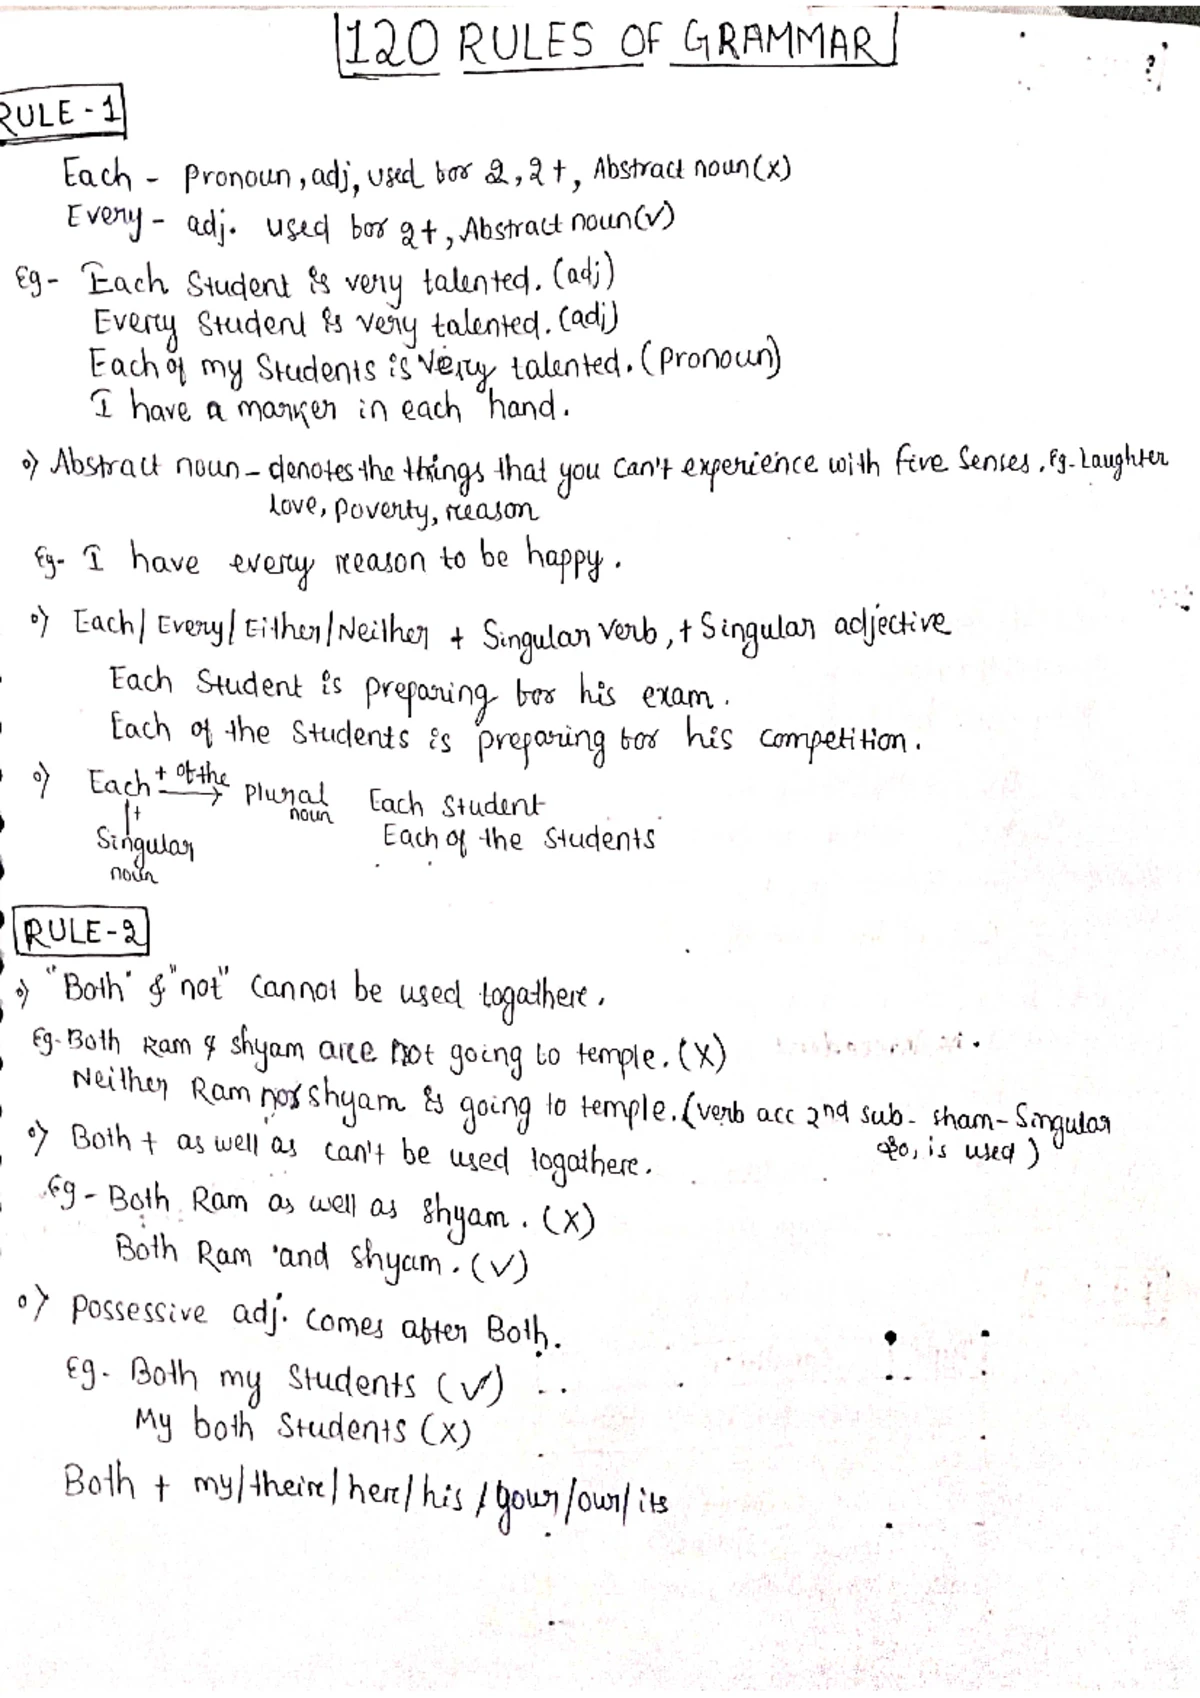 120 RULES OF GRAMMAR
RULE - 1
Each - Pronoun, adj, used for 2, 2+, Abstract noun (x)
Every - adj. used for 2+, Abstract noun (✓)
Eg - Each Student is very talented. (adj)
Every Student is very talented. (adj)
Each of my Students is very talented. (Pronoun)
I have a marker in each hand.
o) Abstract noun - denotes the things that you can't experience with five Senses. Eg- Laughter
Love, Poverty, reason
Eg- I have every reason to be happy.
o) Each/ Every/ Either/ Neither + Singular Verb, + Singular adjective
Each Student is preparing for his exam.
Each of the Students is preparing for his competition.
o) Each + of the → Plural noun Each Student
+ Singular noun Each of the Students
RULE - 2
o) "Both" & "not" cannot be used togathere.
Eg- Both Ram & shyam are not going to temple. (x)
Neither Ram nor shyam is going to temple. (verb acc 2nd sub- sham- Singular
so, is used)
o) Both + as well as can't be used togathere.
Eg - Both Ram as well as shyam. (x)
Both Ram and shyam. (✓)
o) Possessive adj. comes after Both.
Eg- Both my Students (✓)
My both Students (x)
Both + my/their/her/his/your/our/its